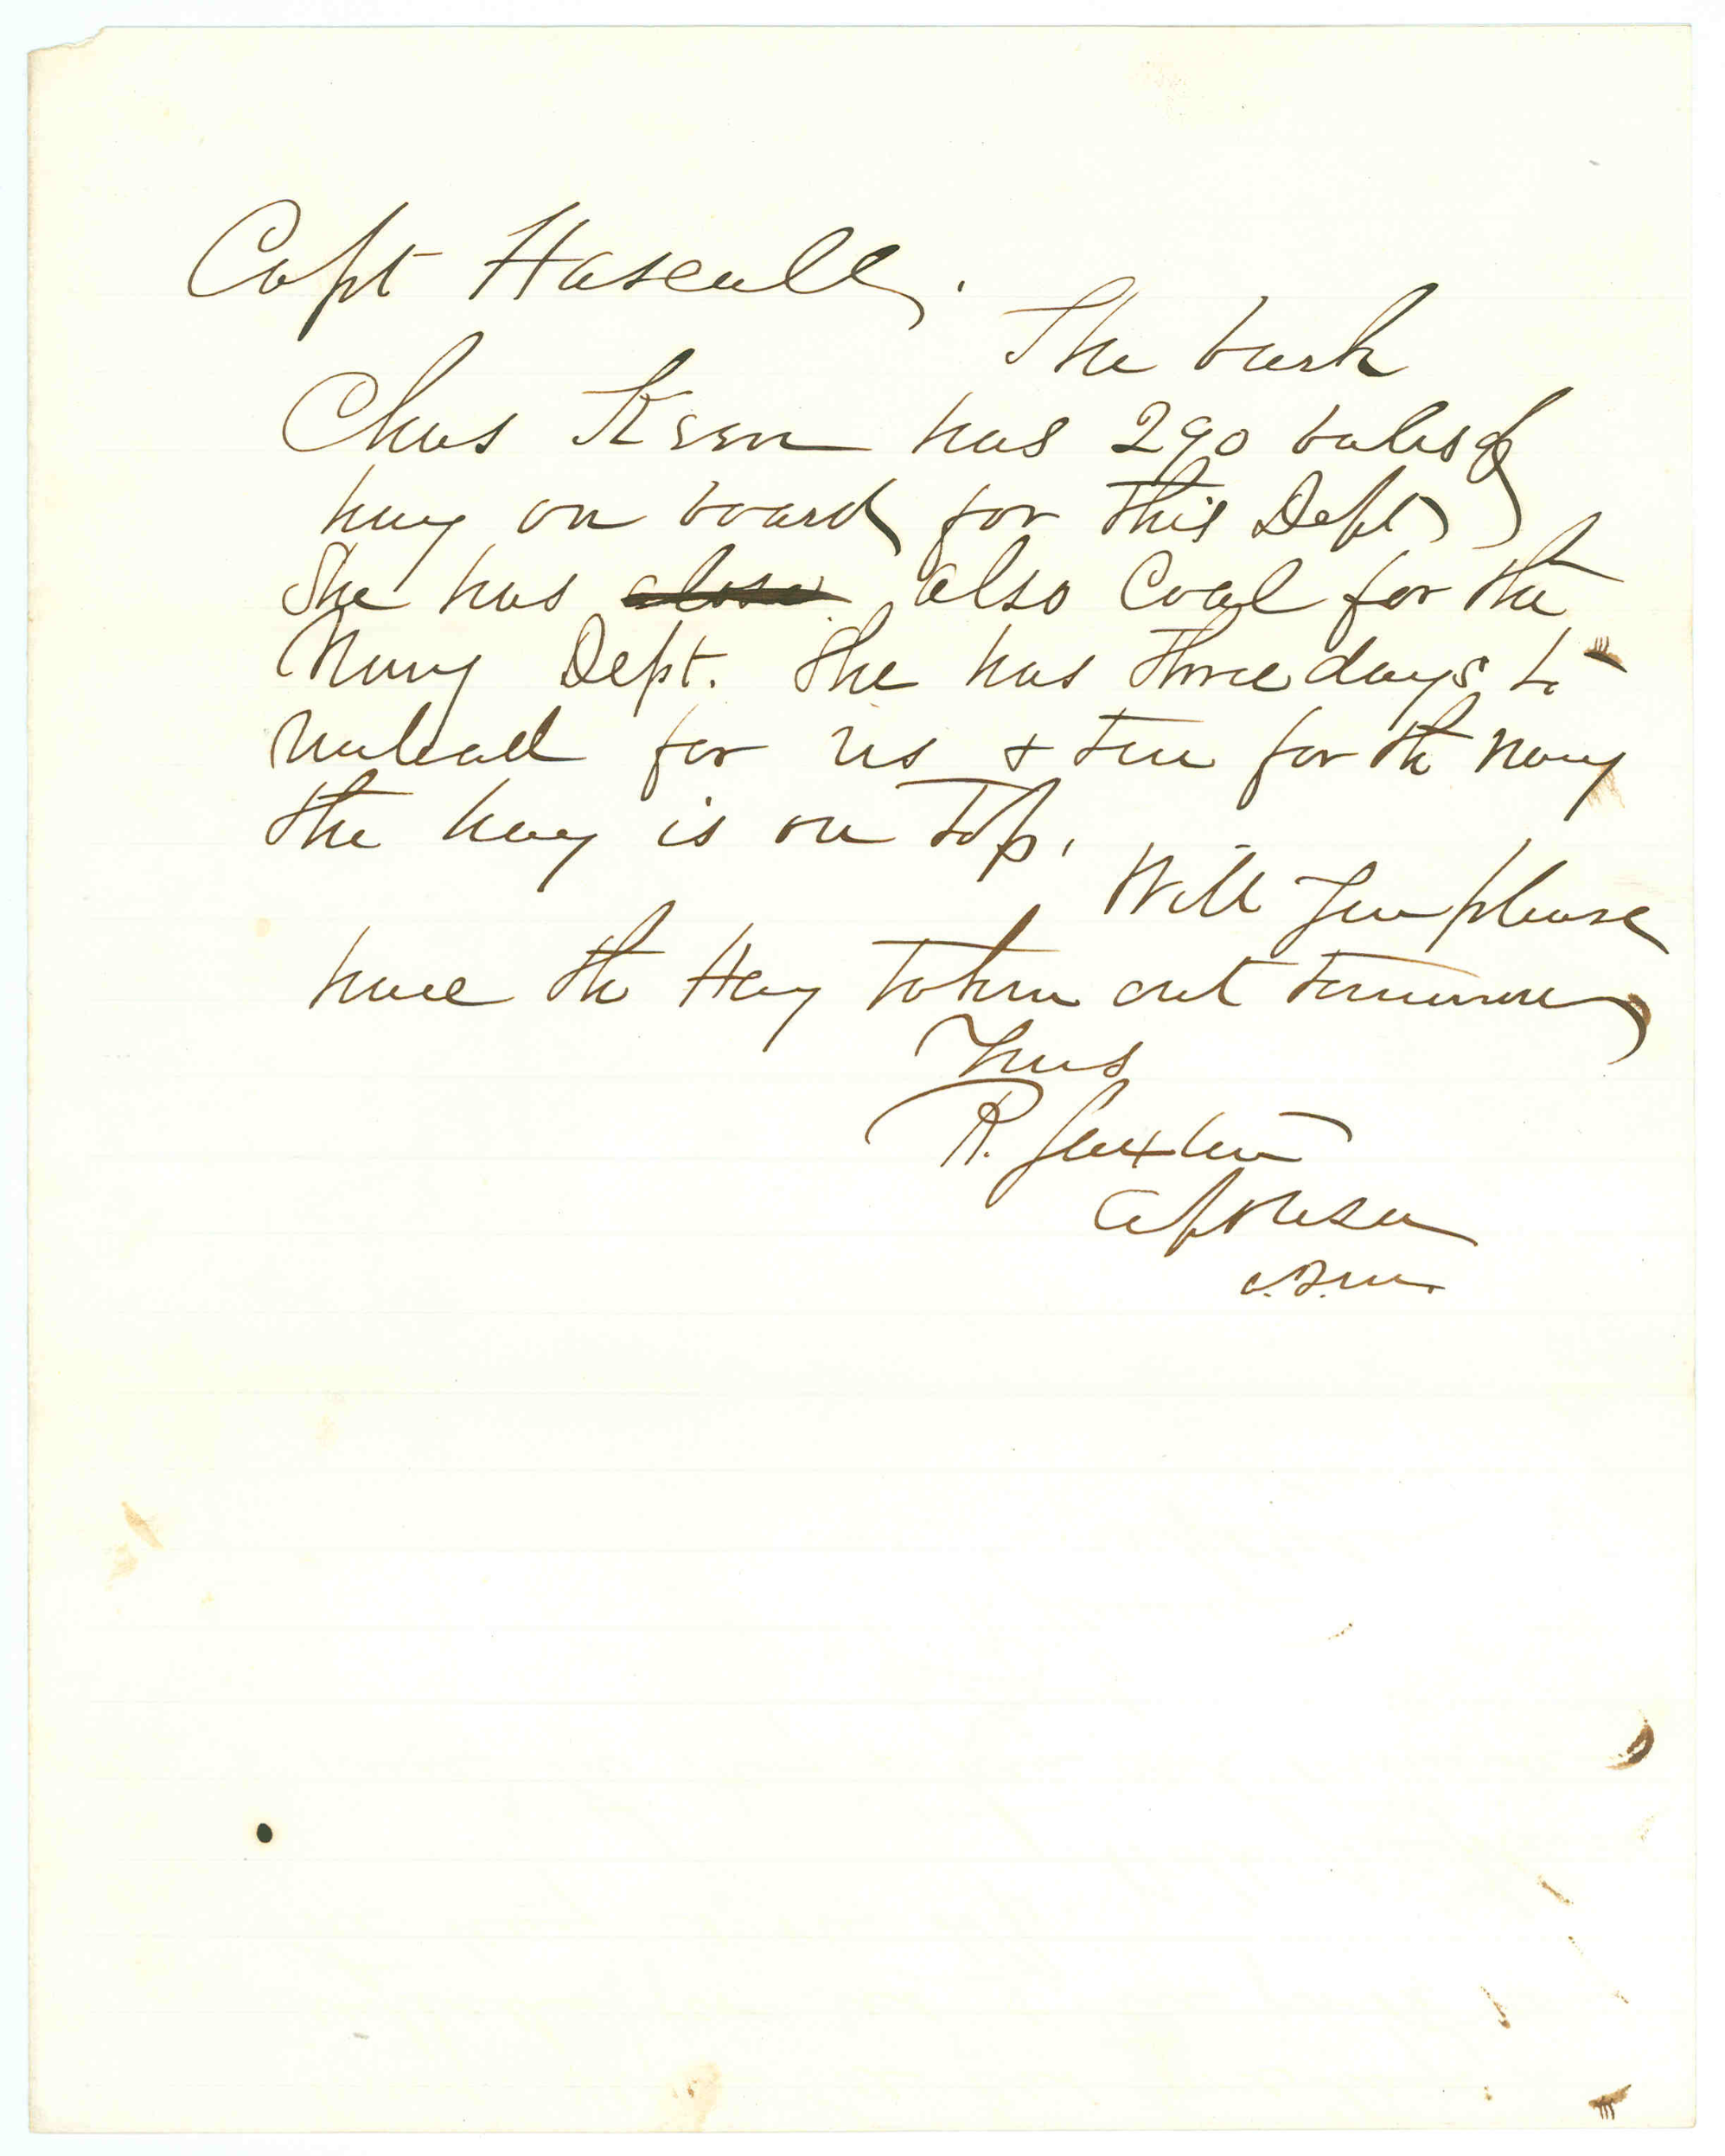 Capt Hascall.
The bark
Chas Keen has 290 bales of
hay on board for this Dept
She has also Coal for the
Navy Dept. She has three days to
unload for us & ten for th Navy
the hay is on top.
Will you please
have th Hay taken out tomorrow
Yours
R. Saxton
Capt USA